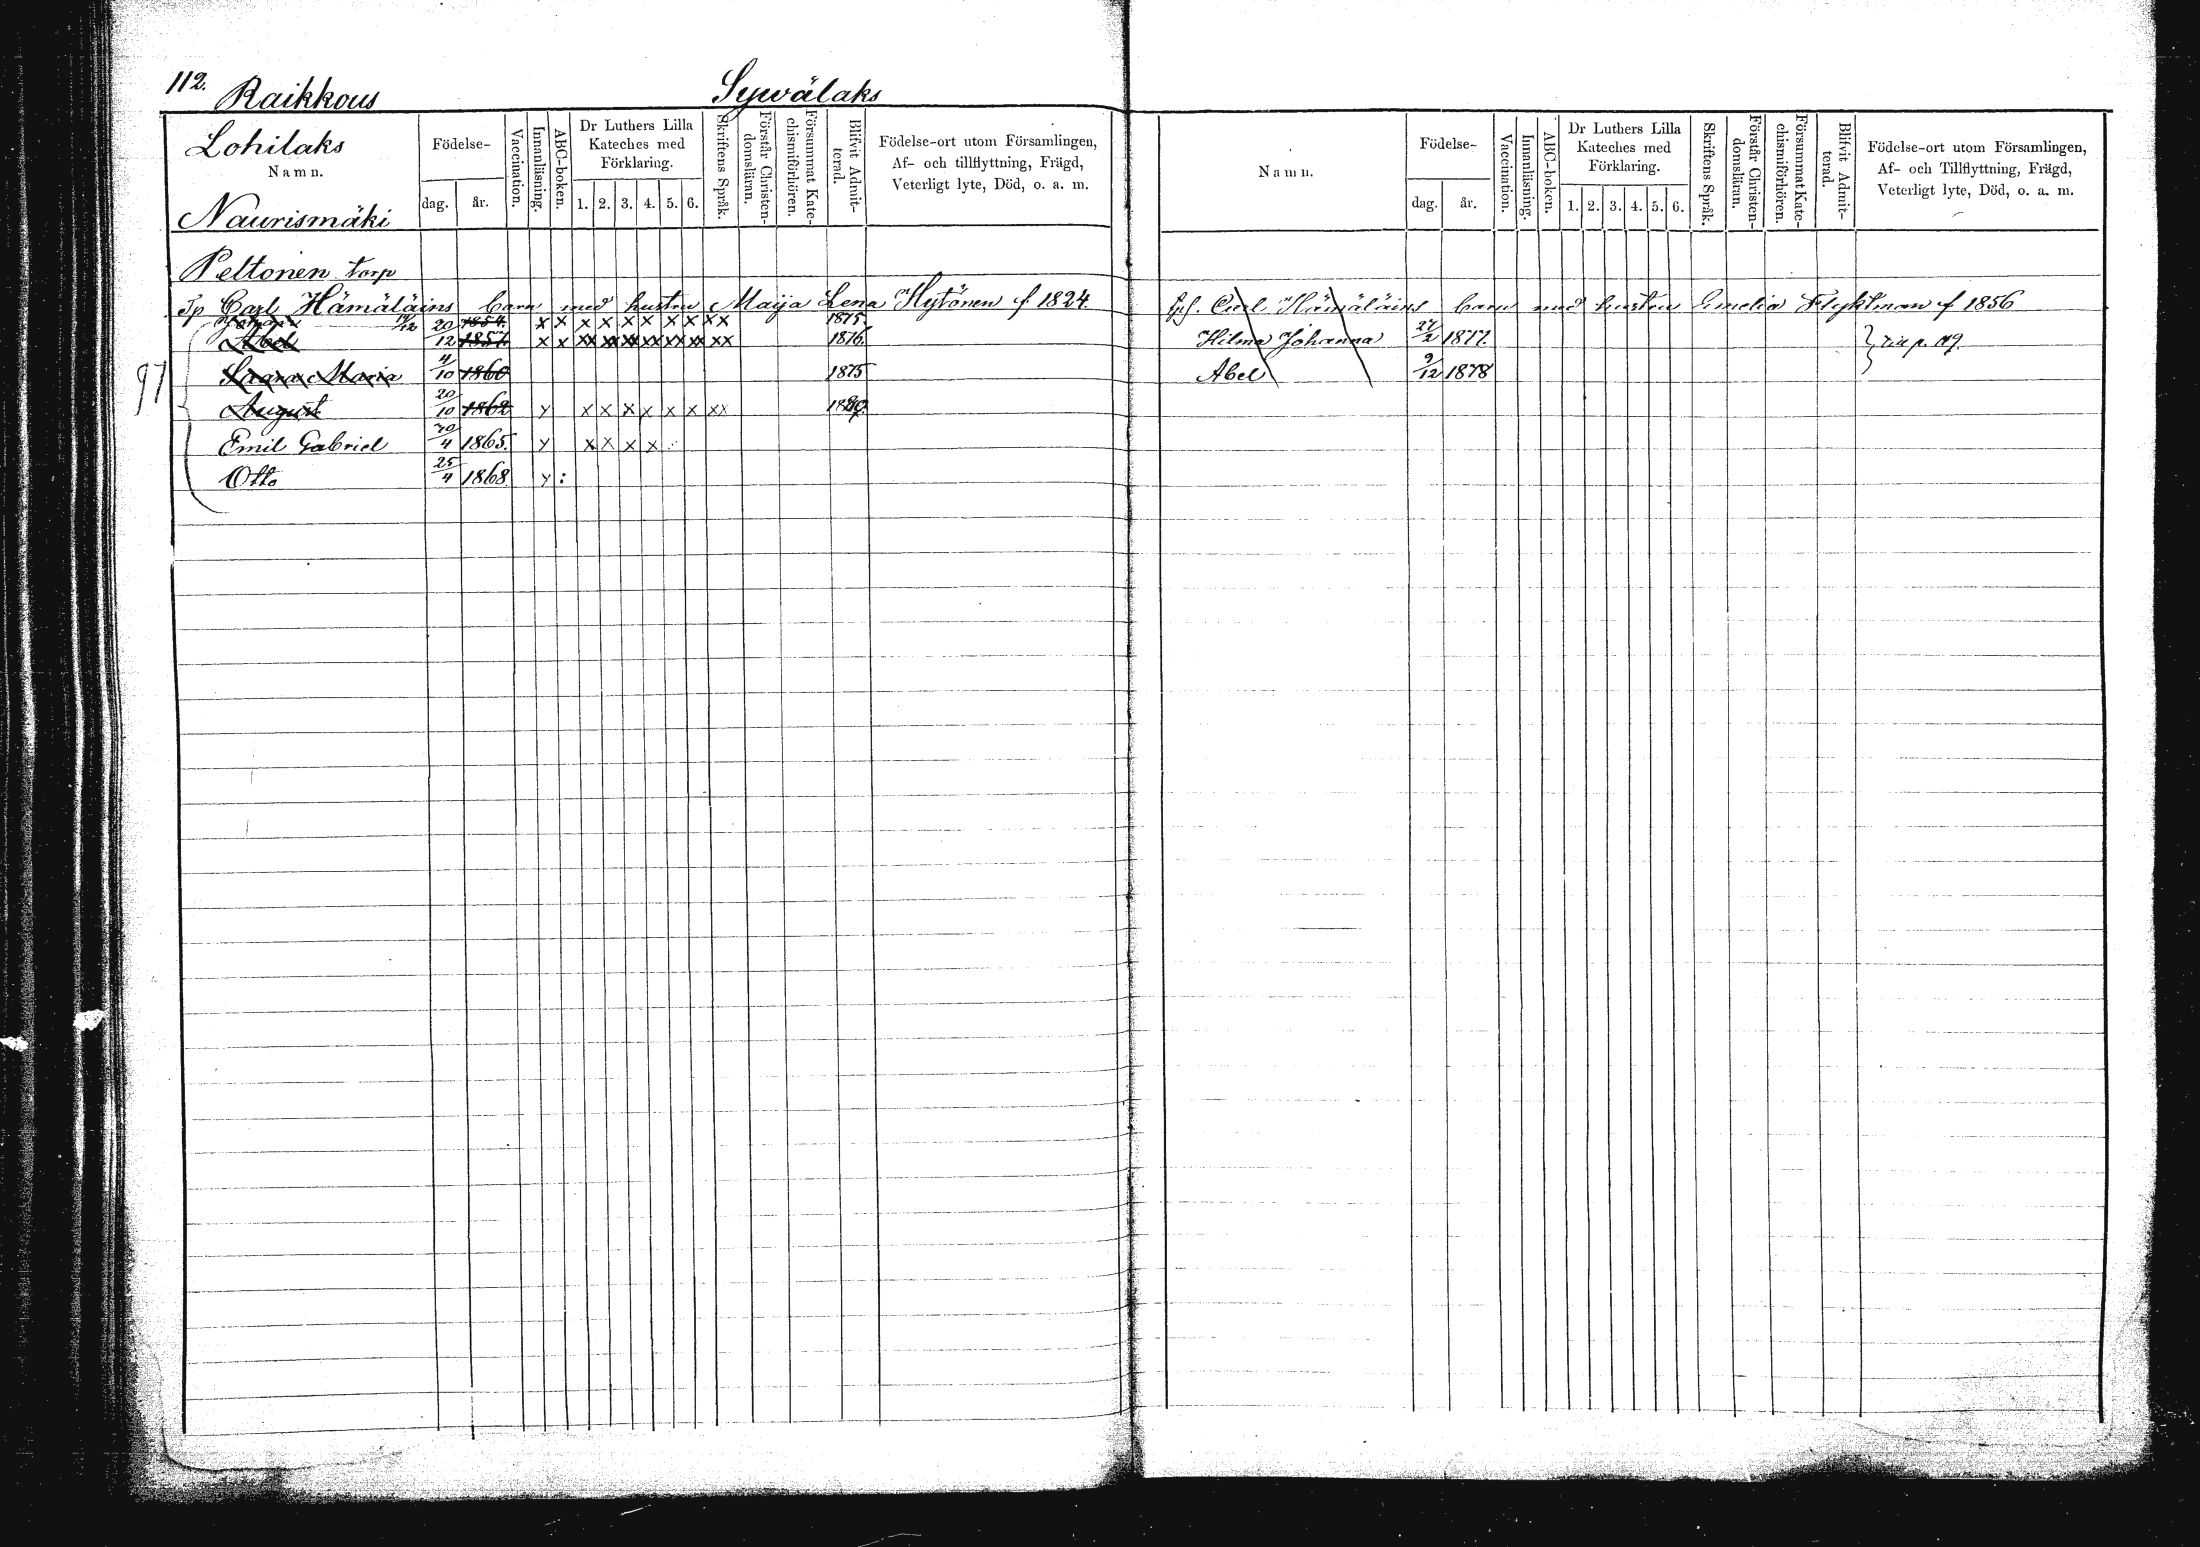 112. Raikkous Sywälaks
Lohilaks
Namn.
Naurismäki
Födelse-
dag. år.
Vaccination.
Innanläsning.
ABC-boken.
Dr Luthers Lilla Kateches med Förklaring.
1. 2. 3. 4. 5. 6.
Skriftens Språk.
Förstår Christendomsläran.
Försummat Katechismiförhören.
Blifvit Admitterad.
Födelse-ort utom Församlingen,
Af- och tillflyttning, Frägd,
Veterligt lyte, Död, o. a. m.
Peltonen torp
Tp Carl Hämäläins barn med hustru Maija Lena Hytönen f. 1824.
20 1854. x x x x x x x x xx 1875.
Abel 12 1857. x x xx xx xx xx xx xx xx 1876.
Maria 4/10 1860 1875
97
August 20/10 1862 y x x x x x x xx
Emil Gabriel 4 1865. y x x x x
Otto 25/4 1868. y :
Namn.
Födelse-
dag. år.
Vaccination.
Innanläsning.
ABC-boken.
Dr Luthers Lilla Kateches med Förklaring.
1. 2. 3. 4. 5. 6.
Skriftens Språk.
Förstår Christendomsläran.
Försummat Katechismiförhören.
Blifvit Admitterad.
Födelse-ort utom Församlingen,
Af- och Tillflyttning, Frägd,
Veterligt lyte, Död, o. a. m.
Carl Hämäläins barn med hustru Emelia Flyktman f 1856
Hilma Johanna 27/2 1877.
Abel 9/12 1878